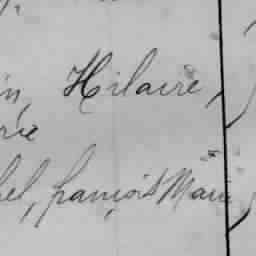 in, Hilaire,
rie
hel, françois Marie